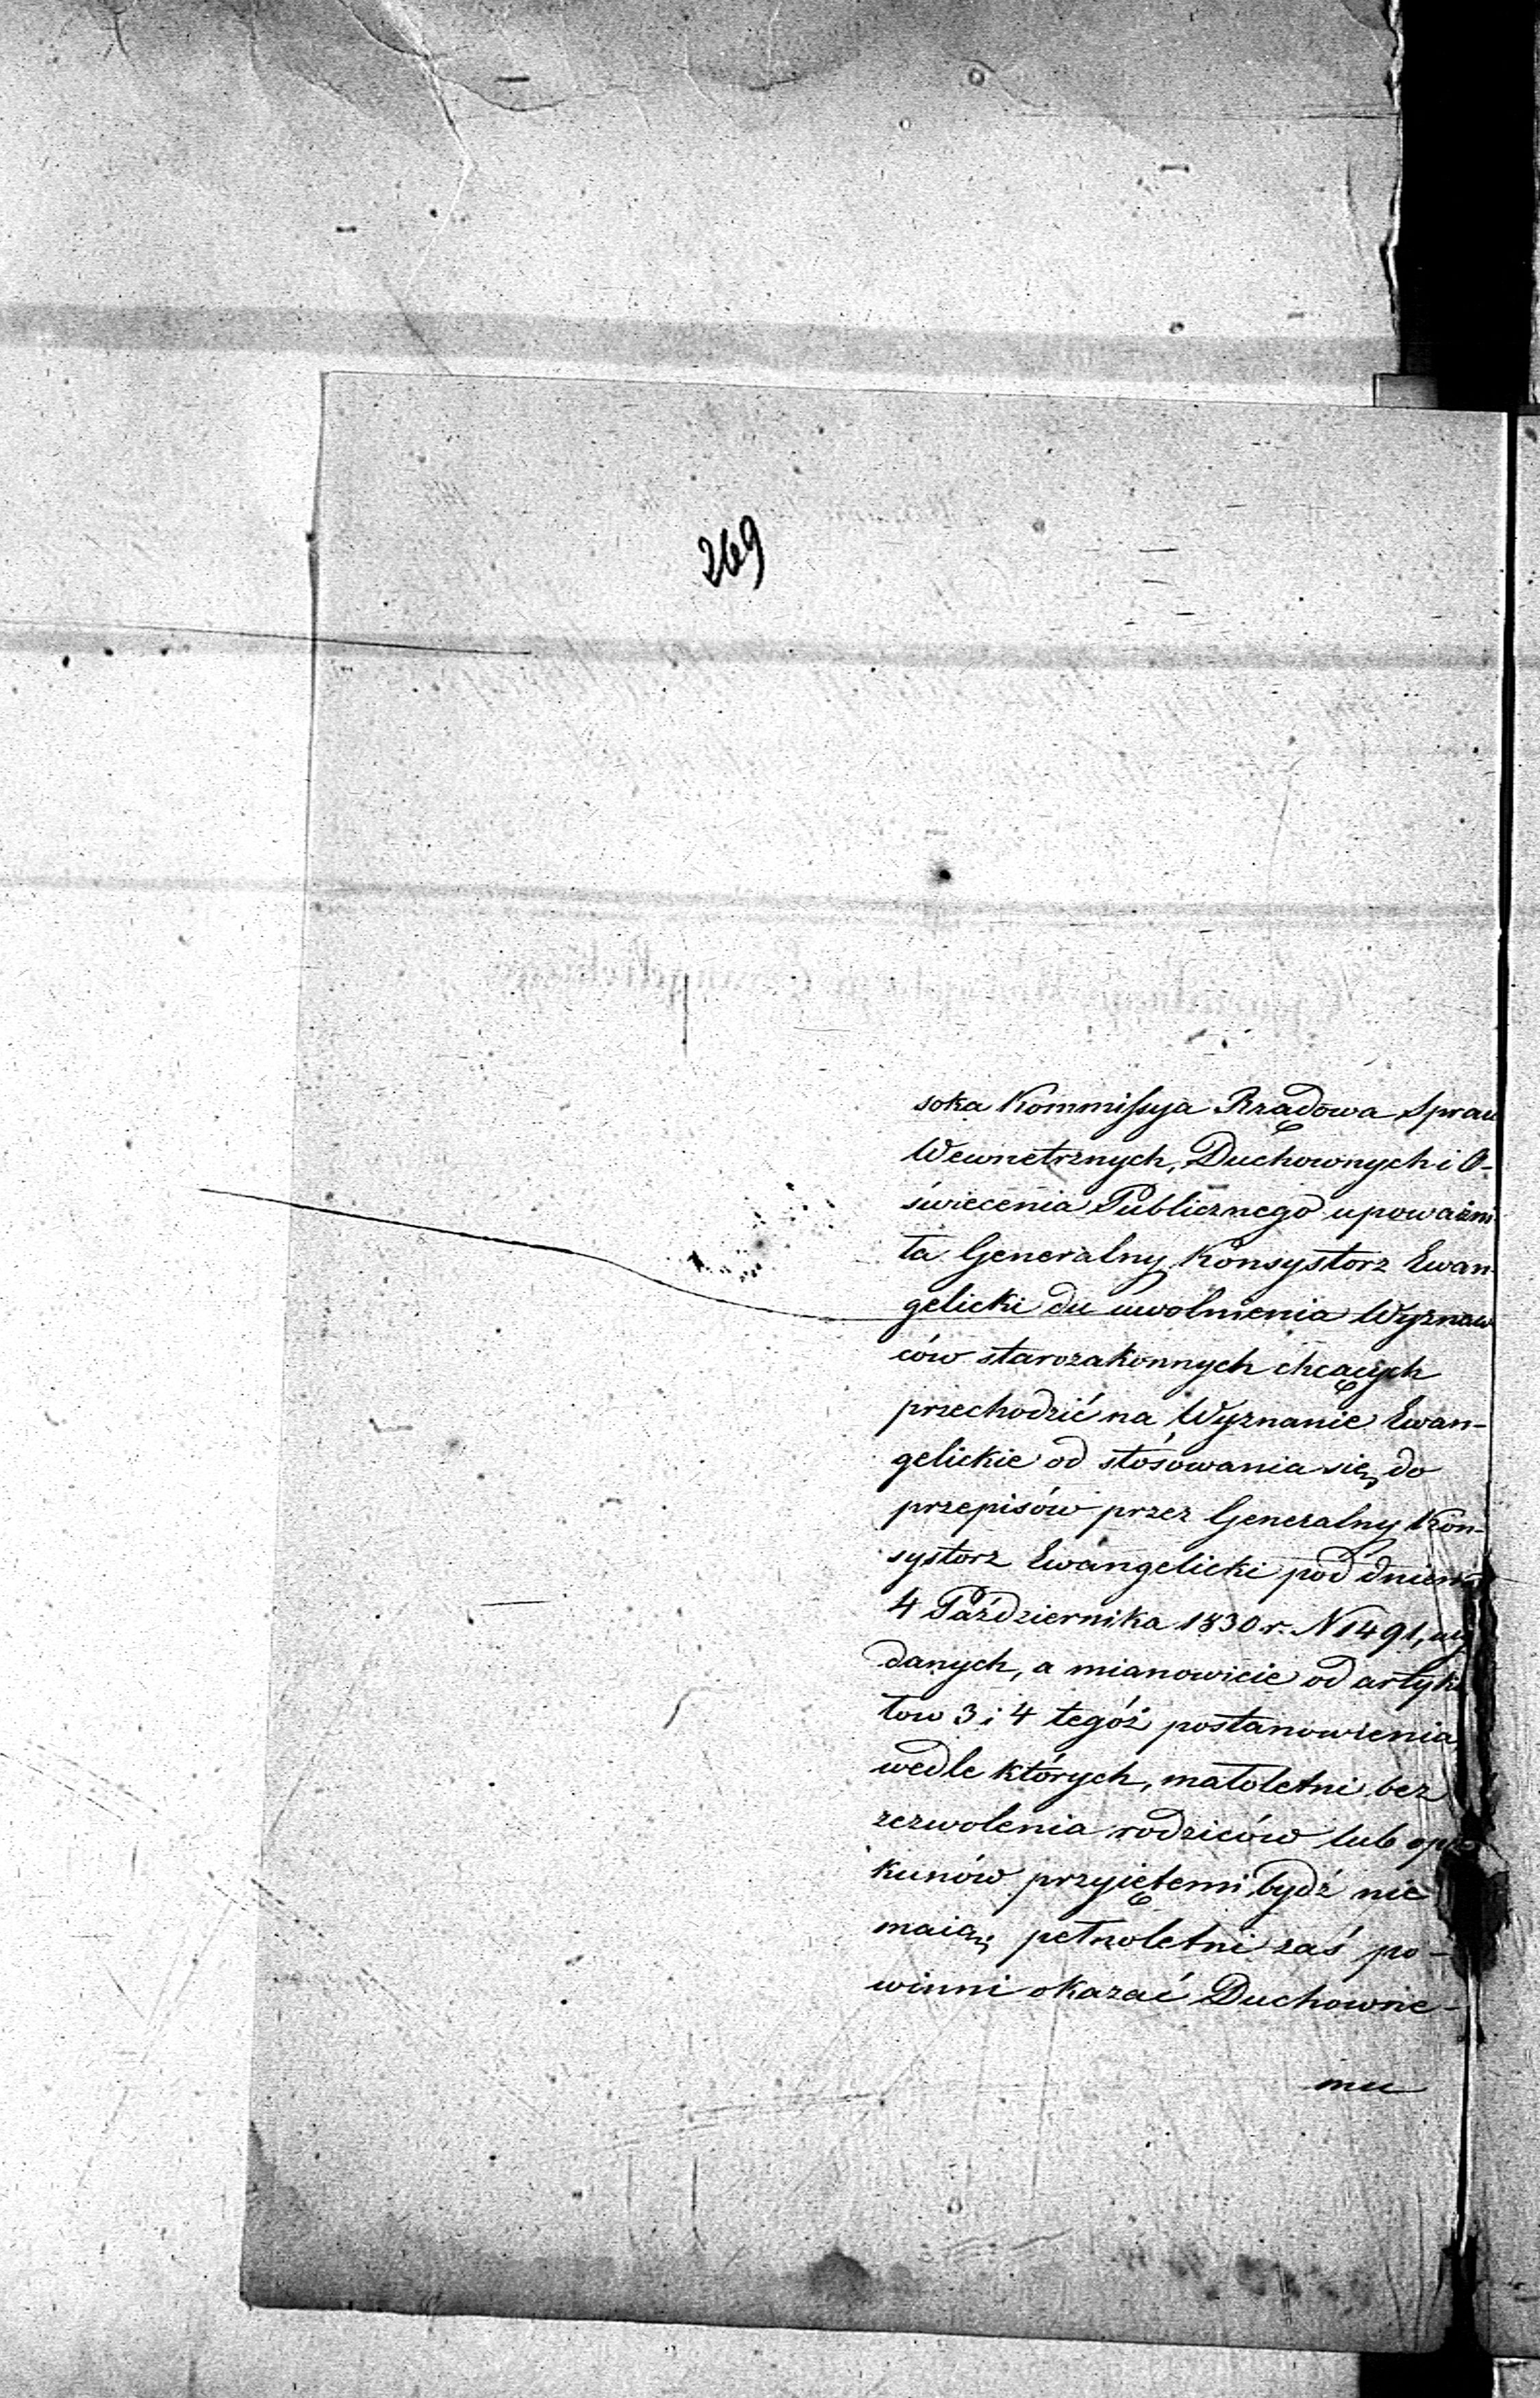 269
soka Kommissya Rządowa Spraw
Wewnetrznych, Duchownych i O-
świecenia Publicznego upoważni
ła Generalny Konsystorz Ewan-
gelicki do uwolnienia Wyznaw
ców starozakonnych chcących
przechodzić na Wyznanie Ewan-
gelickie od stósowania się do
przepisów przez Generalny Kon-
systorz Ewangelicki pod dniem
4 Października 1830 r. N 1491, wy
danych, a mianowicie od artyku
łow 3 i 4 tegóż postanowienia,
wedle których, małoletni bez
zezwolenia rodziców lub opie
kunów przyiętemi bydź nie
maią, pełnoletni zaś po-
winni okazać Duchowne-
mu